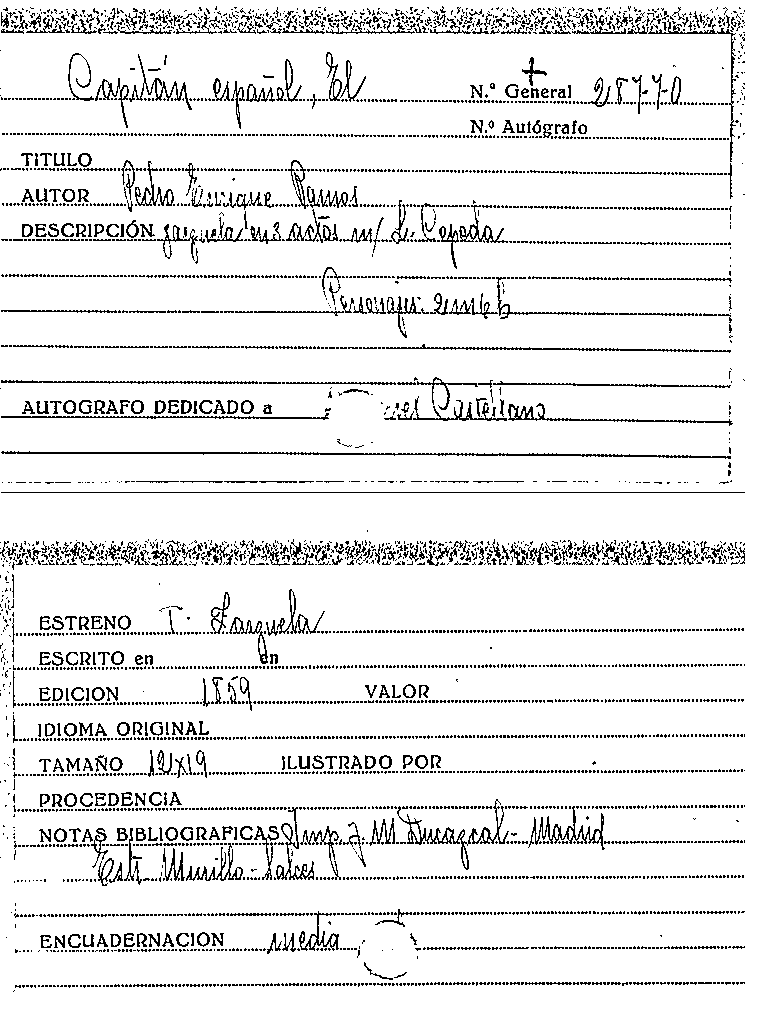 Capitán español, El
N.º General 28770
N.º Autógrafo
TITULO
AUTOR Pedro Enrique Ramos
DESCRIPCIÓN zarzuela en 3 actos m/ L. Cepeda
Personajes: 2 m 6 h
AUTOGRAFO DEDICADO a Castellano
ESTRENO T. Zarzuela
ESCRITO en en
EDICION 1859 VALOR
IDIOMA ORIGINAL
TAMAÑO 12x19 ILUSTRADO POR
PROCEDENCIA
NOTAS BIBLIOGRAFICAS Imp. J. M. Ducazcal - Madrid
Estr. Murillo - Salces
ENCUADERNACION media